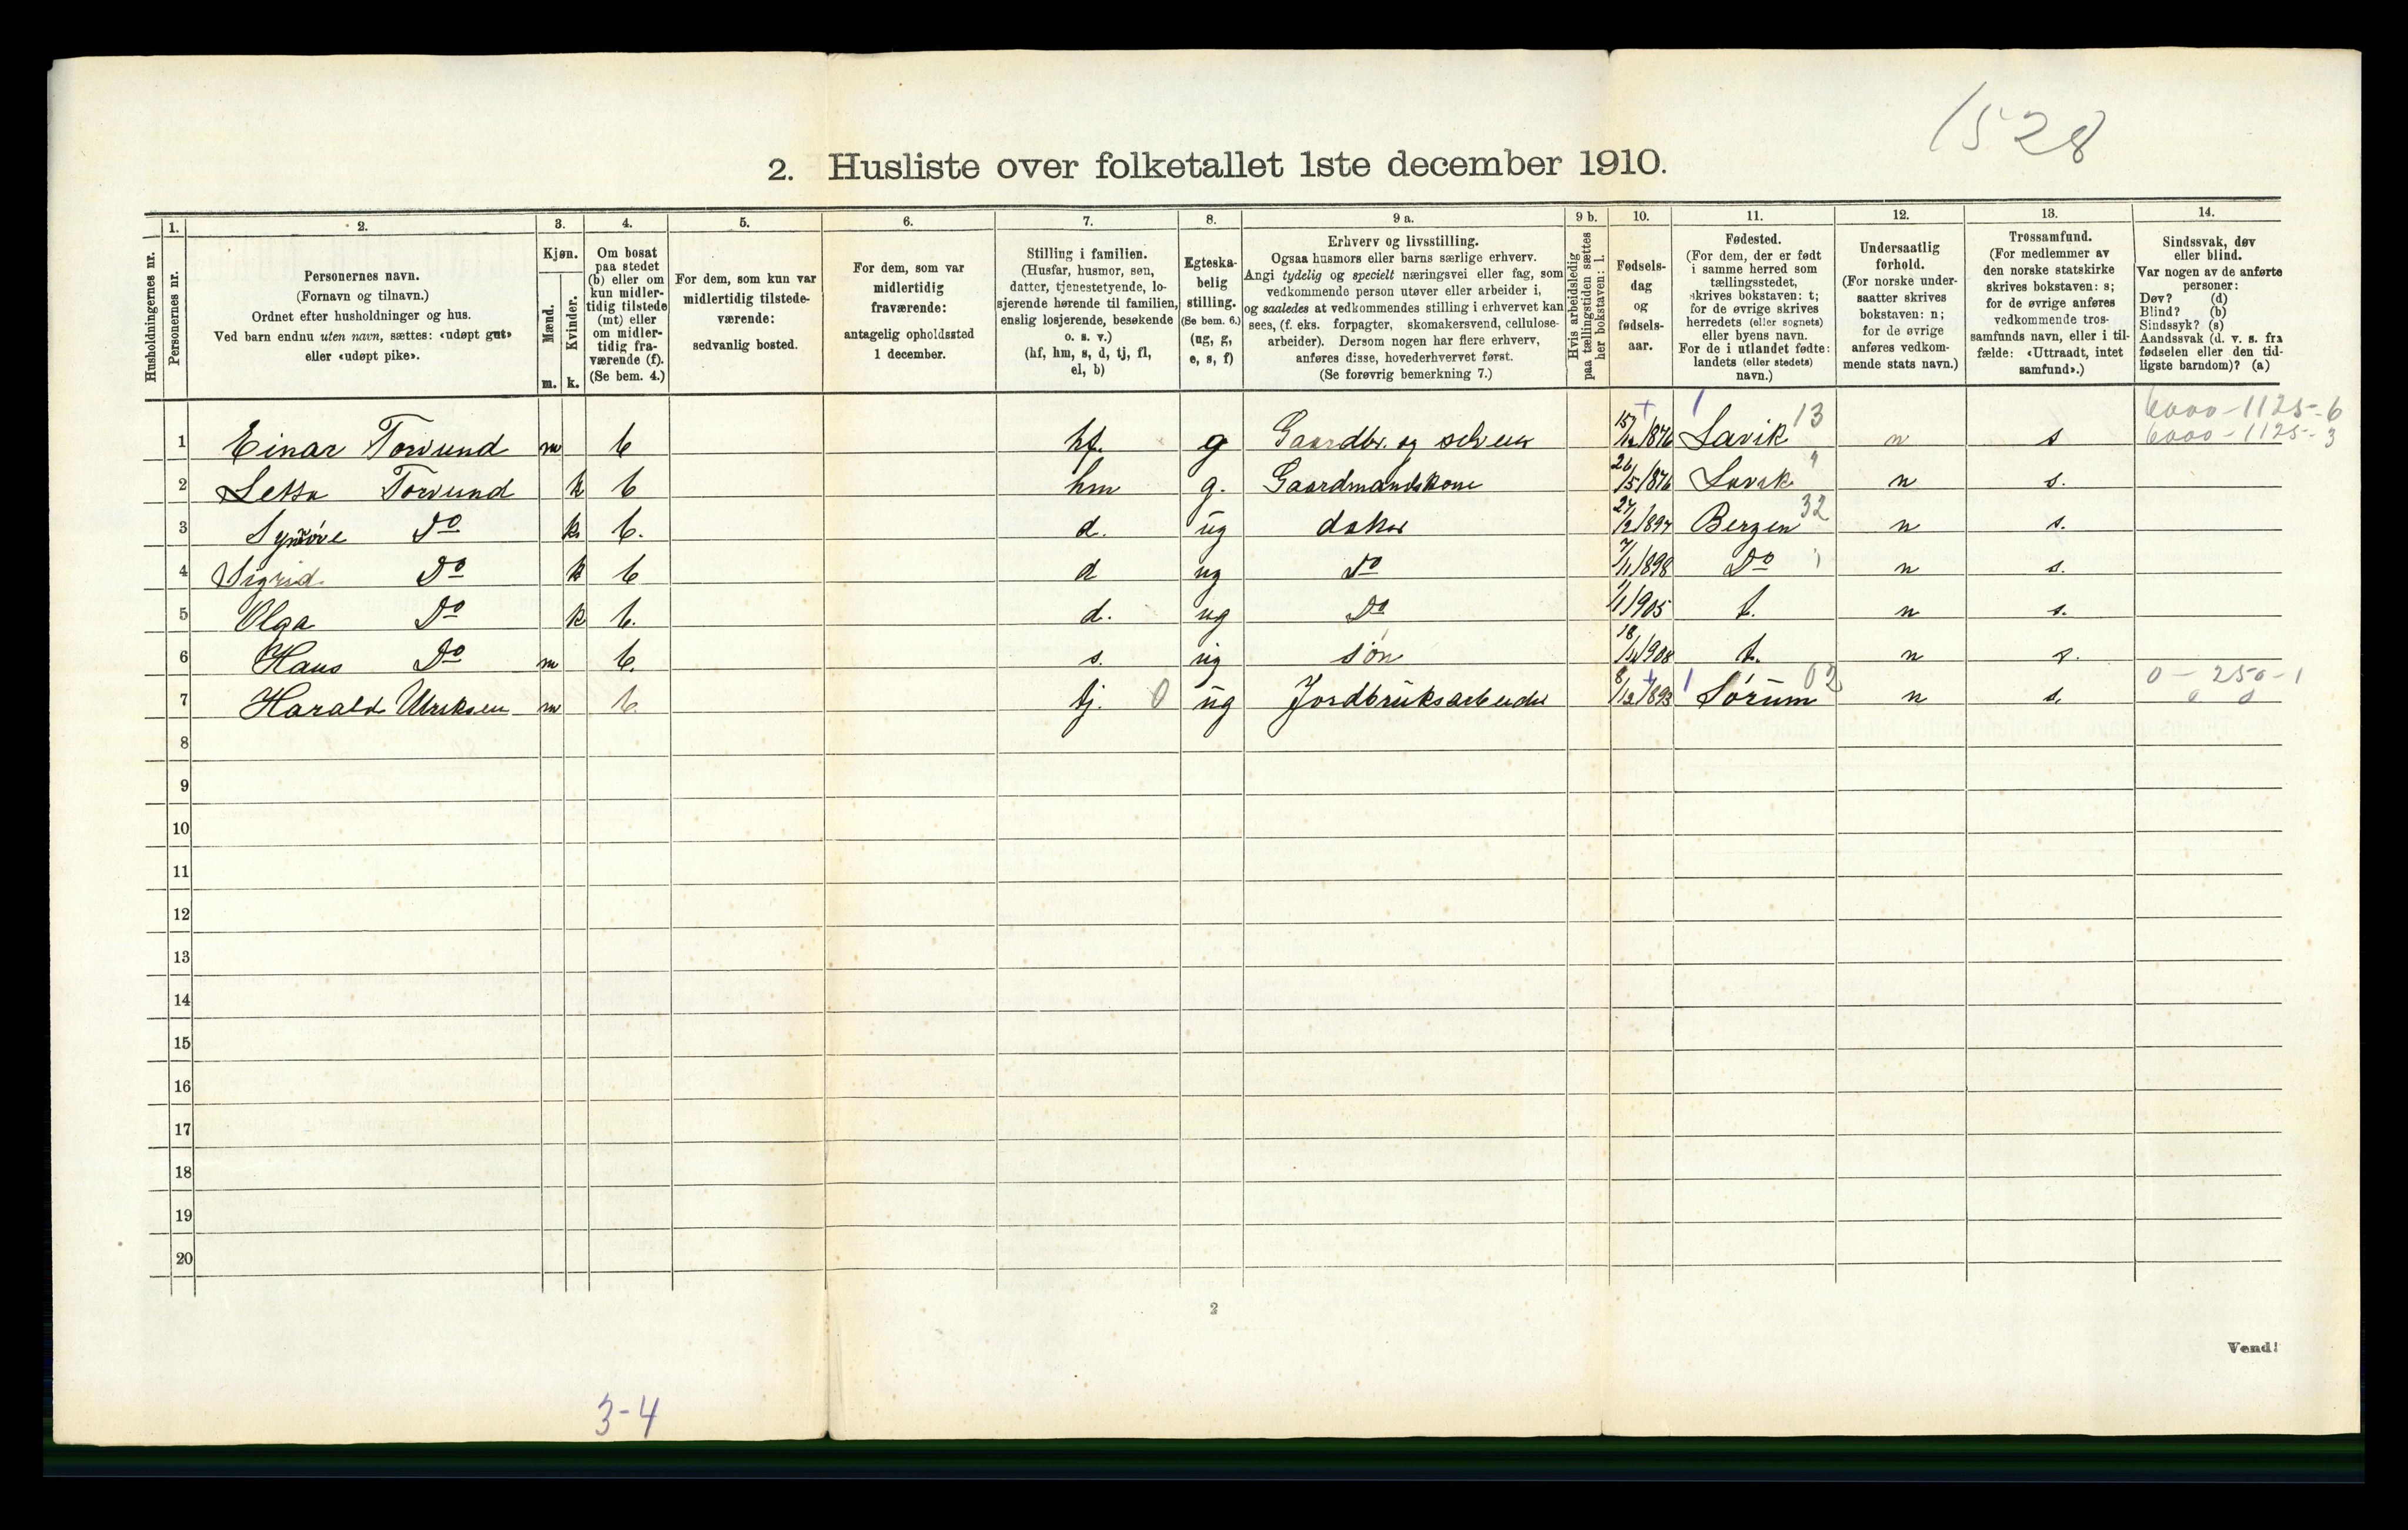 1528
2. Husliste over folketallet 1ste december 1910.
1. 2. 3. 4. 5. 6. 7. 8. 9 a. 9 b. 10. 11. 12. 13. 14.
Husholdningernes nr.
Personernes nr.
Personernes navn.
(Fornavn og tilnavn.)
Ordnet efter husholdninger og hus.
Ved barn endnu uten navn, sættes: «udøpt gut»
eller «udøpt pike».
Kjøn.
Mænd.
Kvinder.
m. k.
Om bosat
paa stedet
(b) eller om
kun midler-
tidig tilstede
(mt) eller
om midler-
tidig fra-
værende (f).
(Se bem. 4.)
For dem, som kun var
midlertidig tilstede-
værende:
sedvanlig bosted.
For dem, som var
midlertidig
fraværende:
antagelig opholdssted
1 december.
Stilling i familien.
(Husfar, husmor, søn,
datter, tjenestetyende, lo-
sjerende hørende til familien,
enslig losjerende, besøkende
o. s. v.)
(hf, hm, s, d, tj, fl,
el, b)
Egteska-
belig
stilling.
(Se bem. 6.)
(ug, g,
e, s, f)
Erhverv og livsstilling.
Ogsaa husmors eller barns særlige erhverv.
Angi tydelig og specielt næringsvei eller fag, som
vedkommende person utøver eller arbeider i,
og saaledes at vedkommendes stilling i erhvervet kan
sees, (f. eks. forpagter, skomakersvend, cellulose-
arbeider). Dersom nogen har flere erhverv,
anføres disse, hovederhvervet først.
(Se forøvrig bemerkning 7.)
Hvis arbeidsledig
paa tællingstiden sættes
her bokstaven: l.
Fødsels-
dag
og
fødsels-
aar.
Fødested.
(For dem, der er født
i samme herred som
tællingsstedet,
skrives bokstaven: t;
for de øvrige skrives
herredets (eller sognets)
eller byens navn.
For de i utlandet fødte:
landets (eller stedets)
navn.)
Undersaatlig
forhold.
(For norske under-
saatter skrives
bokstaven: n;
for de øvrige
anføres vedkom-
mende stats navn.)
Trossamfund.
(For medlemmer av
den norske statskirke
skrives bokstaven: s;
for de øvrige anføres
vedkommende tros-
samfunds navn, eller i til-
fælde: «Uttraadt, intet
samfund».)
Sindssvak, døv
eller blind.
Var nogen av de anførte
personer:
Døv? (d)
Blind? (b)
Sindssyk? (s)
Aandssvak (d. v. s. fra
fødselen eller den tid-
ligste barndom)? (a)
6000-1125-6
1 Einar Torvund m b hf. g Gaardbr. og selveier 15/12 1876 Lavik 13 n s 6000-1125-3
2 Torvund k b hm g. Gaardmandskone 26/5 1876 Lavik " n s.
3 Synnøve Do k b. d. ug datter 27/12 1897 Bergen 32 n s.
4 Sigrid Do k b d ug Do 7/11 1898 Do n s.
5 Olga Do k b. d. ug Do 1/1 1905 t. n s.
6 Hans Do m b. s. ug søn 1908 t. n s.
7 Harald Ulriksen m b. tj. 0 ug Jordbruksarbeider 8/12 1893 Sørum 02 n s. 0-250-1
0 0
8
9
10
11
12
13
14
15
16
17
18
19
20
2
Vend!
3-4